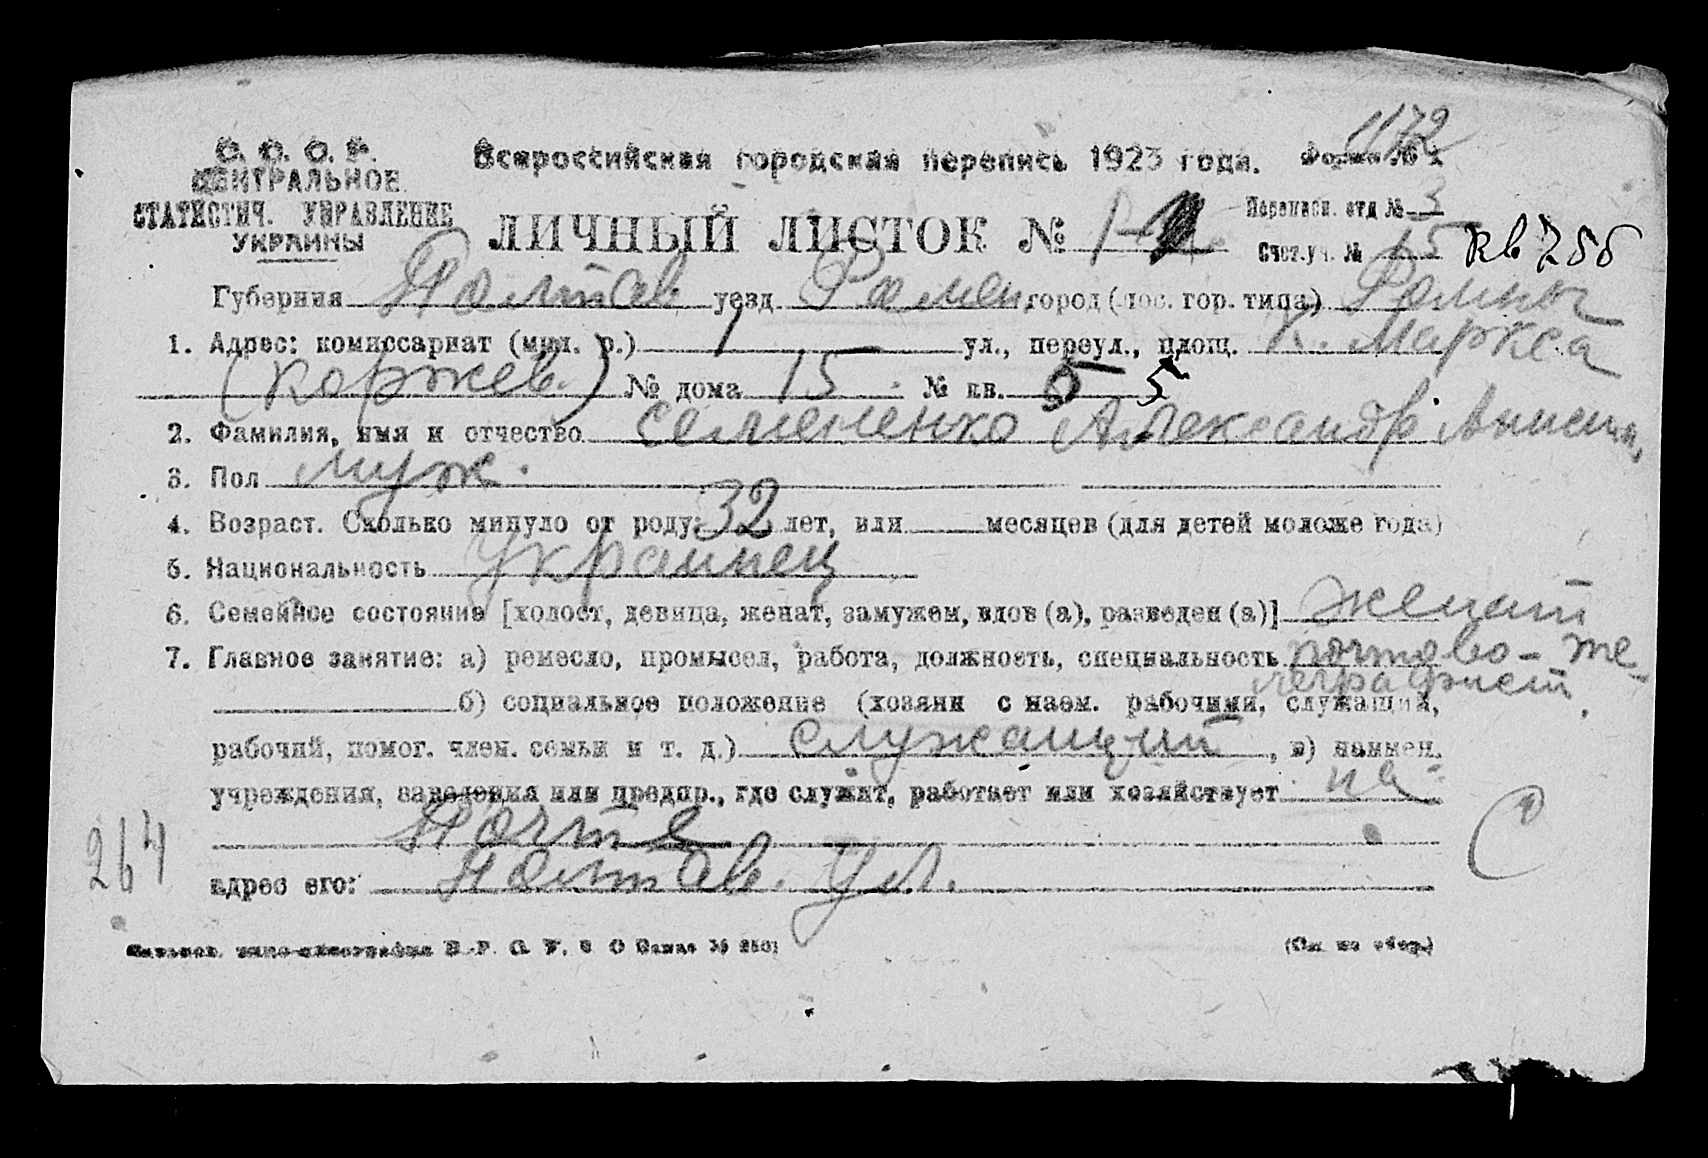 1172
С. С. С. Р.
ЦЕНТРАЛЬНОЕ
СТАТИСТИЧ. УПРАВЛЕНИЕ
УКРАИНЫ
Всероссийская городская перепись 1923 года. Форма №
ЛИЧНЫЙ ЛИСТОК № 1
Переписн. отд № 3
Счет. уч. № 15 кв 755
Губерния Полтав уезд Ромен город (пос. гор. типа) Ромны
1. Адрес: комиссариат (мил. р.) 1 ул., переул., площ. К. Маркса
(Коржев.) № дома 15 № кв. 5 5
2. Фамилия, имя и отчество Семененко Александр
3. Пол муж.
4. Возраст. Сколько минуло от роду: 32 лет, или месяцев (для детей моложе года)
5. Национальность Украинец
6. Семейное состояние [холост, девица, женат, замужем, вдов (а), разведен (а)] женат
7. Главное занятие: а) ремесло, промысел, работа, должность, специальность почтово-те-
леграфист
б) социальное положение (хозяин с наем. рабочими, служащий,
рабочий, помог. член. семьи и т. д.) служащий, в) наимен.
учреждения, заведения или предпр., где служит, работает или хозяйствует на
Почте
264 С
адрес его: Полтав. ул.
(См на обор.)